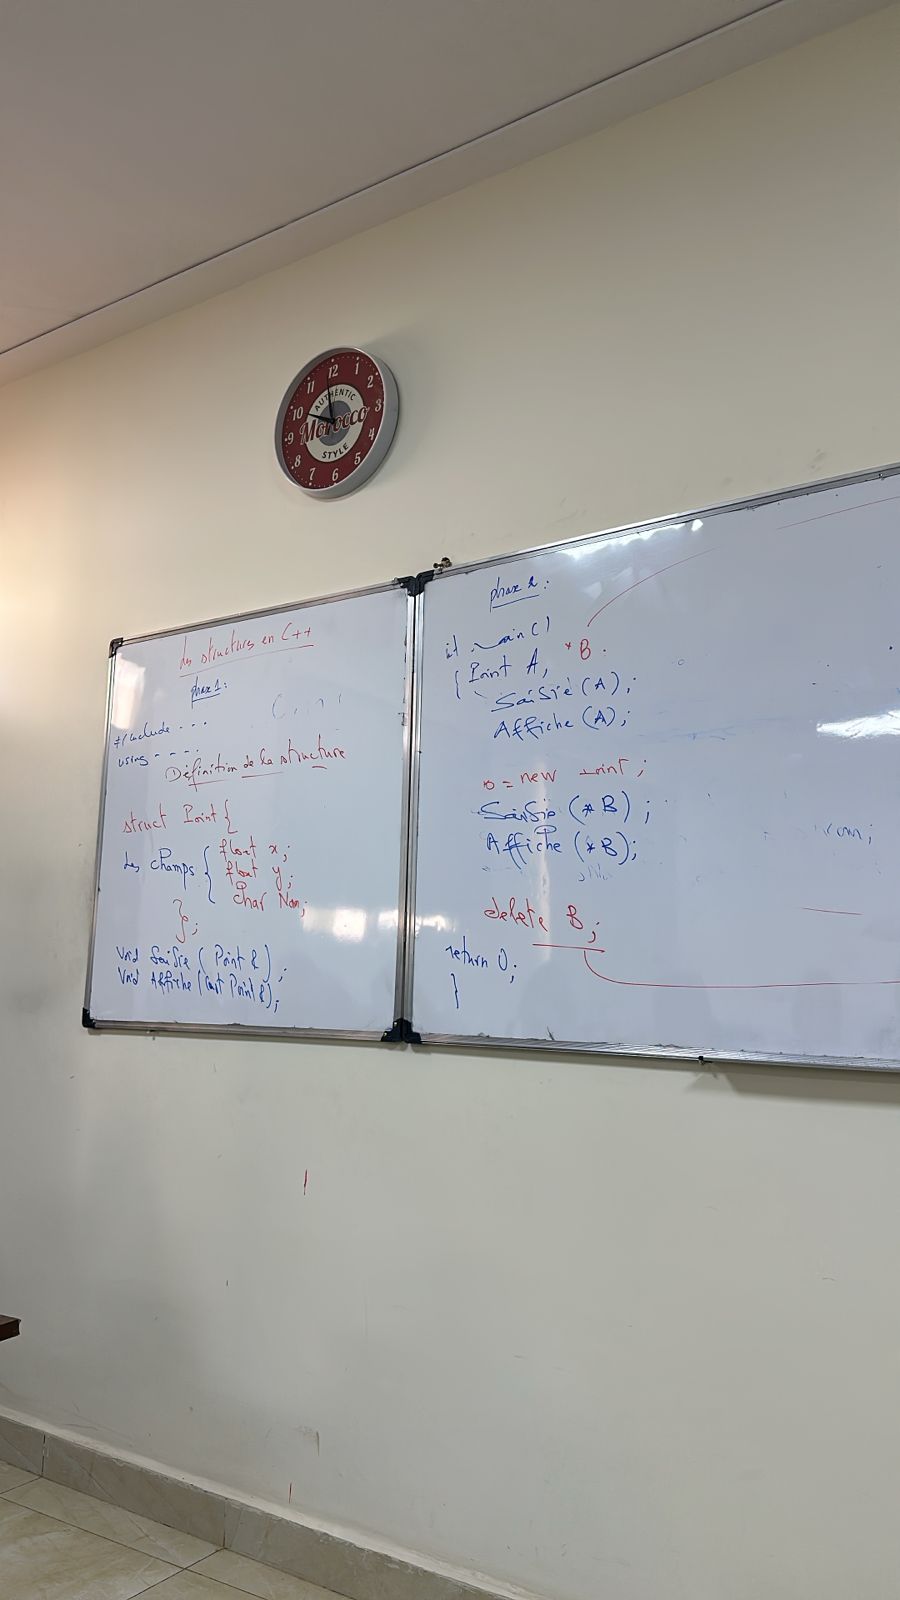 12
1
2
3
4
5
6
7
8
9
10
11
AUTHENTIC
Morocco
STYLE
Les structures en C++
phase 1:
#include - - -
using - - - -.
Définition de la structure
struct Point {
Les champs { float x;
float y;
char Nom;
};
void Saisie ( Point & );
void Affiche (const Point &);
phase 2:
main()
{ Point A, *B.
Saisie (A);
Affiche (A);
= new oint;
Saisie (*B);
Affiche (*B);
delete B;
return 0;
}